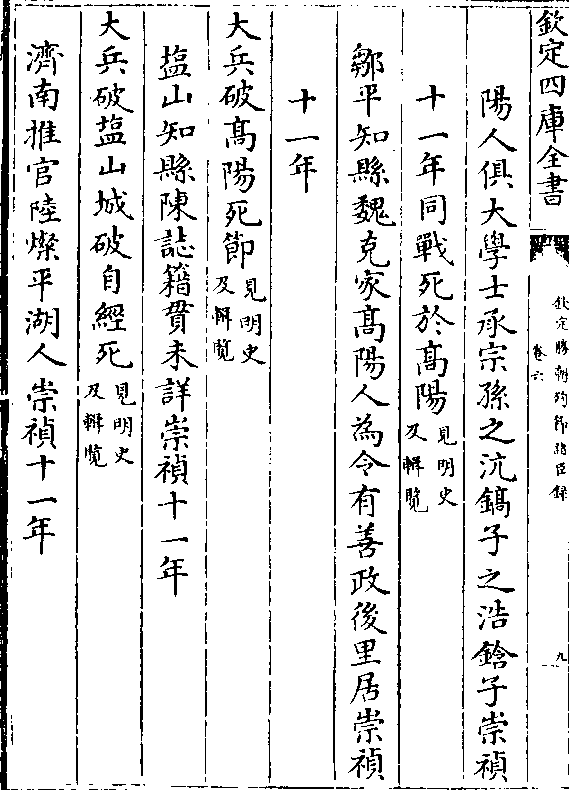 欽定四庫全書
欽定勝朝殉節諸臣錄
卷六
九
陽人俱大學士承宗孫之沆鎬子之浩鎗子崇禎
十一年同戰死於高陽見明史
及輯覽
鄒平知縣魏克家高陽人為令有善政後里居崇禎
十一年
大兵破高陽死節見明史
及輯覽
盐山知縣陳誌籍貫未詳崇禎十一年
大兵破盐山城破自經死見明史
及輯覽
濟南推官陸燦平湖人崇禎十一年